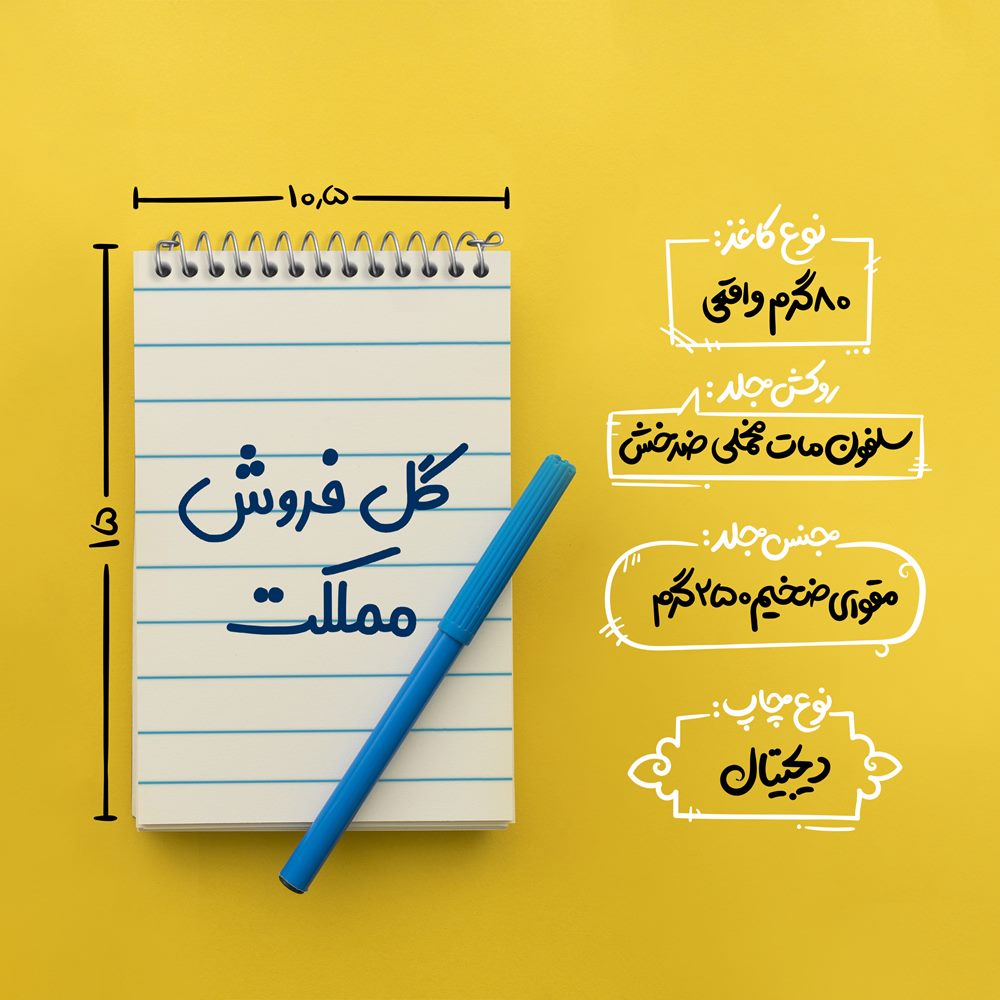 ۱۰٫۵
۱۵
گل فروش
مملکت
نوع کاغذ:
۸۰گرم واقعی
روکش جلد:
سلفون مات مخملی ضدخش
جنس جلد:
مقوای ضخیم ۲۵۰گرم
نوع چاپ:
دیجیتال